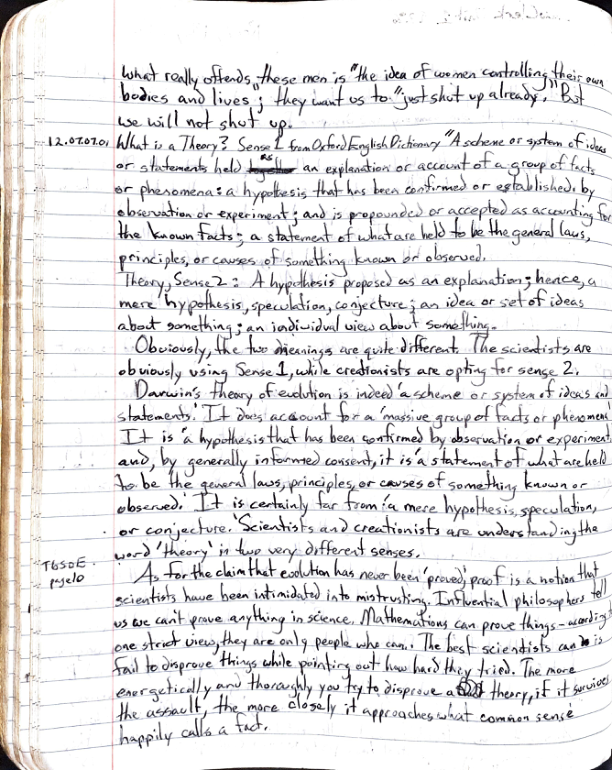 what really offends "these men is "the idea of women controlling their own
bodies and lives"; they want us to "just shut up already." But
we will not shut up.
12.07.07.01 What is a Theory? Sense 1 from Oxford English Dictionary "A scheme or system of ideas
or statements held as an explanation or account of a group of facts
or phenomena: a hypothesis that has been confirmed or established by
observation or experiment; and is propounded or accepted as accounting for
the known facts; a statement of what are held to be the general laws,
principles, or causes of something known or observed.
Theory, Sense 2: A hypothesis proposed as an explanation; hence, a
mere hypothesis, speculation, conjecture; an idea or set of ideas
about something; an individual view about something.
Obviously, the two meanings are quite different. The scientists are
obviously using Sense 1, while creationists are opting for sense 2.
Darwin's theory of evolution is indeed 'a scheme or system of ideas and
statements.' It does account for a 'massive group of facts or phenomena
It is 'a hypothesis that has been confirmed by observation or experiment
and, by generally informed consent, it is 'a statement of what are held
to be the general laws, principles, or causes of something known or
observed.' It is certainly far from 'a mere hypothesis, speculation,
or conjecture.' Scientists and creationists are understanding the
word 'theory' in two very different senses.
TGSOE page 10 As for the claim that evolution has never been 'proved,' proof is a notion that
scientists have been intimidated into mistrusting. Influential philosophers tell
us we can't prove anything in science. Mathematicians can prove things - according
one strict view, they are only people who can.. The best scientists can is
fail to disprove things while pointing out how hard they tried. The more
energetically and thoroughly you try to disprove a theory, if it survives
the assault, the more closely it approaches what common sense
happily calls a fact.